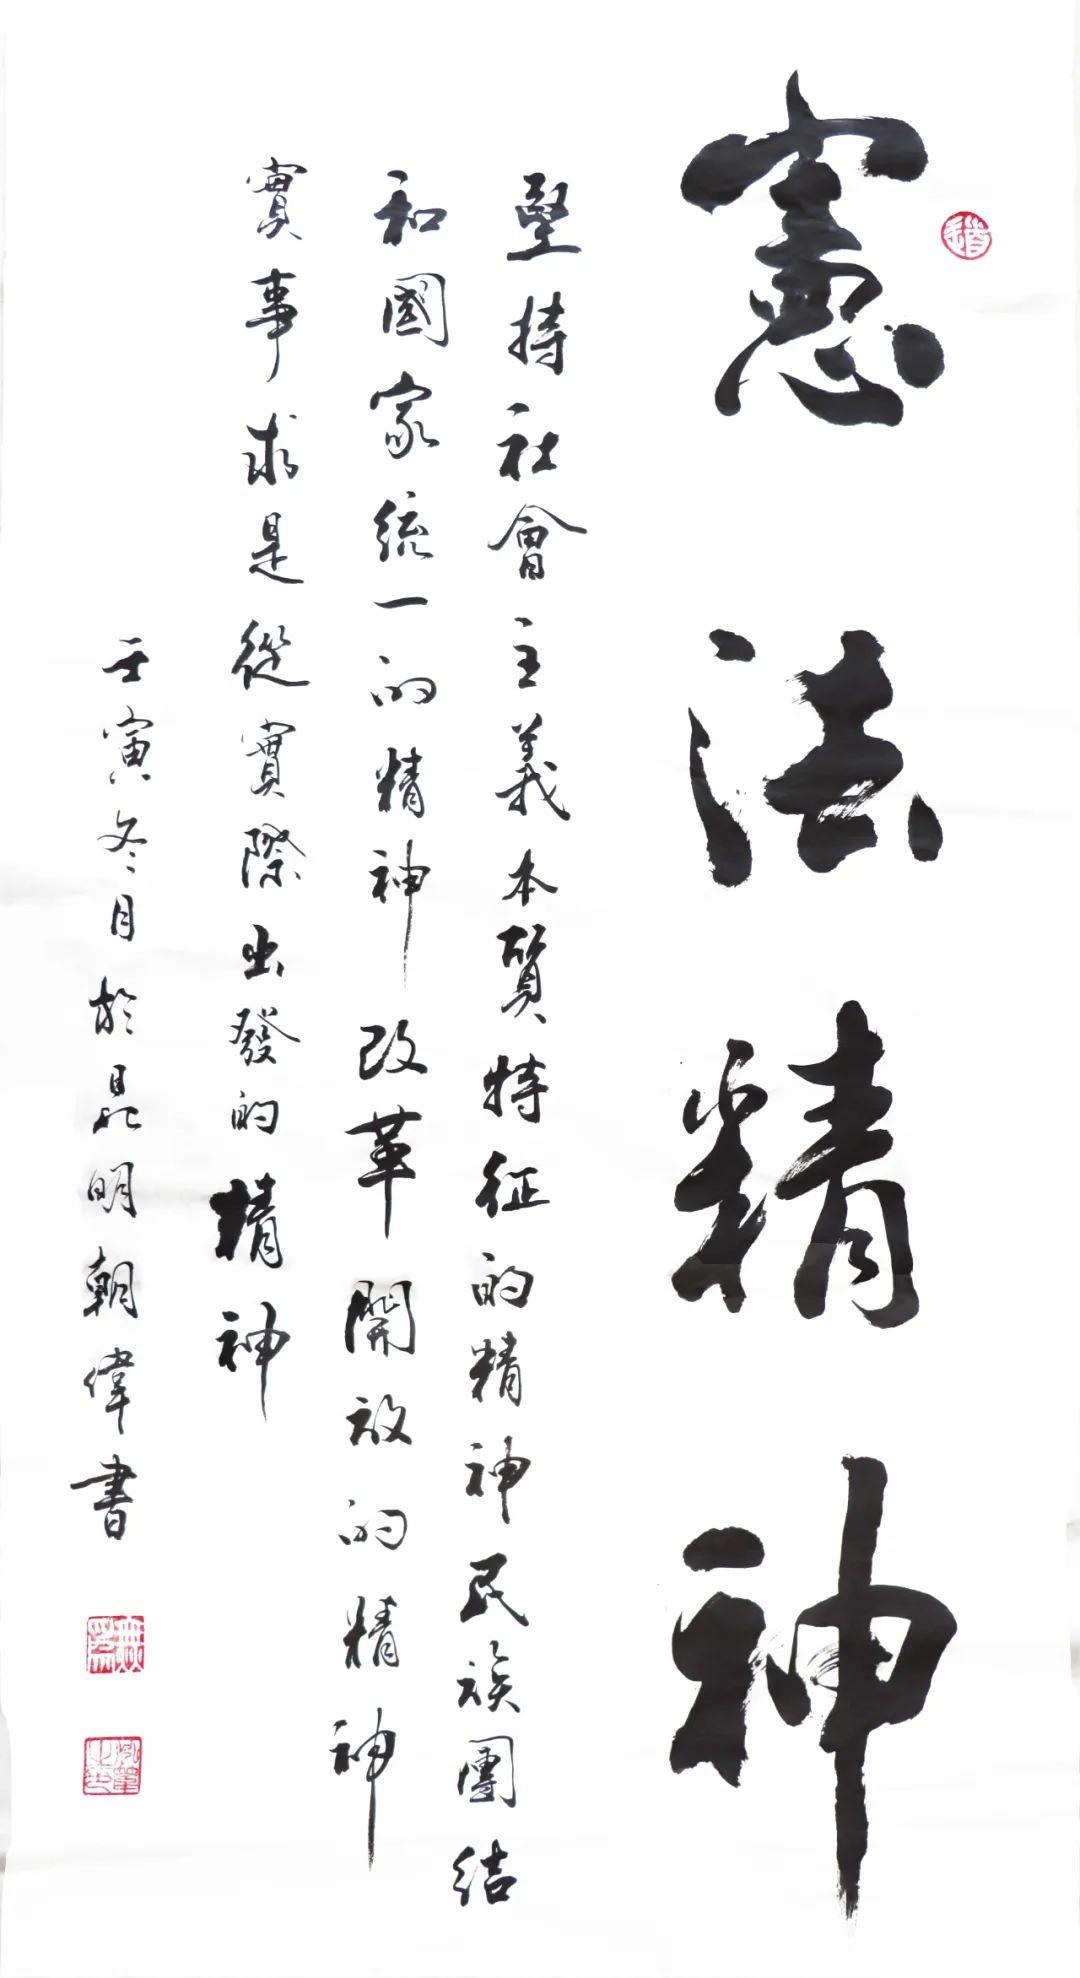 憲法精神
堅持社會主義本質特征的精神民族團結
和國家統一的精神改革開放的精神
實事求是從實際出發的精神
壬寅冬月於昆明朝偉書